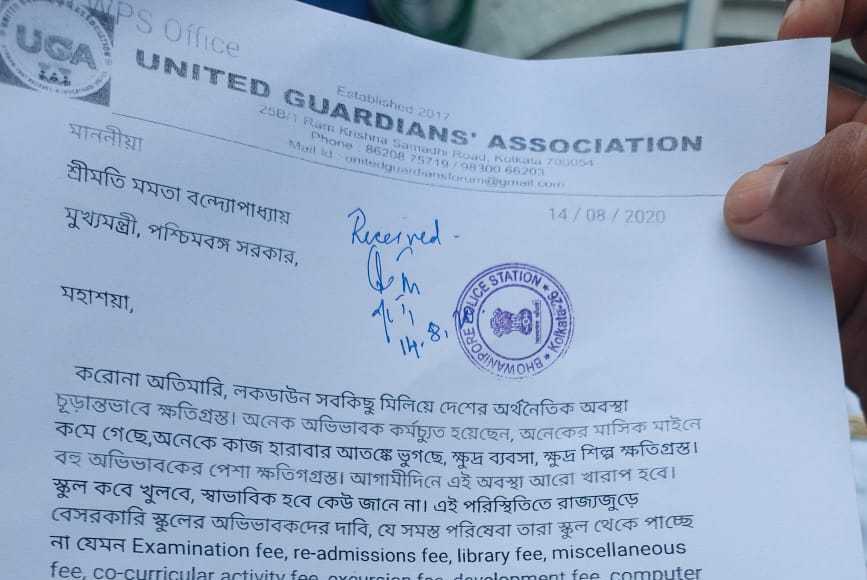 WPS Office
UGA
Established 2017
UNITED GUARDIANS' ASSOCIATION
25B/1 Ram Krishna Samadhi Road, Kolkata 700054
Phone : 86208 75719 / 98300 66203
Mail Id : unitedguardiansforum@gmail.com
14 / 08 / 2020
মাননীয়া
শ্রীমতি মমতা বন্দ্যোপাধ্যায়
মুখ্যমন্ত্রী, পশ্চিমবঙ্গ সরকার,
Received -
14.8.
BHOWANIPORE POLICE STATION * Kolkata-26 *
মহাশয়া,
করোনা অতিমারি, লকডাউন সবকিছু মিলিয়ে দেশের অর্থনৈতিক অবস্থা
চূড়ান্তভাবে ক্ষতিগ্রস্ত। অনেক অভিভাবক কর্মচ্যুত হয়েছেন, অনেকের মাসিক মাইনে
কমে গেছে,অনেকে কাজ হারাবার আতঙ্কে ভুগছে, ক্ষুদ্র ব্যবসা, ক্ষুদ্র শিল্প ক্ষতিগ্রস্ত।
বহু অভিভাবকের পেশা ক্ষতিগগ্রস্ত। আগামীদিনে এই অবস্থা আরো খারাপ হবে।
স্কুল কবে খুলবে, স্বাভাবিক হবে কেউ জানে না। এই পরিস্থিতিতে রাজ্যজুড়ে
বেসরকারি স্কুলের অভিভাবকদের দাবি, যে সমস্ত পরিষেবা তারা স্কুল থেকে পাচ্ছে
না যেমন Examination fee, re-admissions fee, library fee, miscellaneous
fee, co-curricular activity fee, excursion fee, development fee, computer